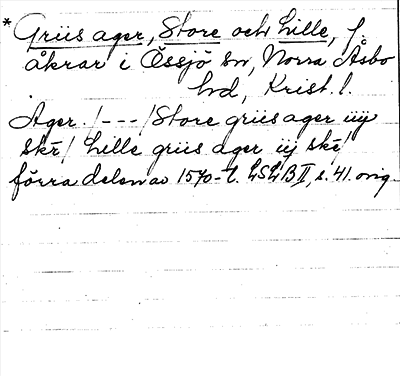 * Griis ager, Store och Lille, f.
åkrar i Össjö sn, Norra Åsbo
hd, Krist. l.
Ager. /---/ Store griis ager iiij
skē / Lille griis ager iij skē
förra delen av 1570-t. LSLB II, s. 41. orig.